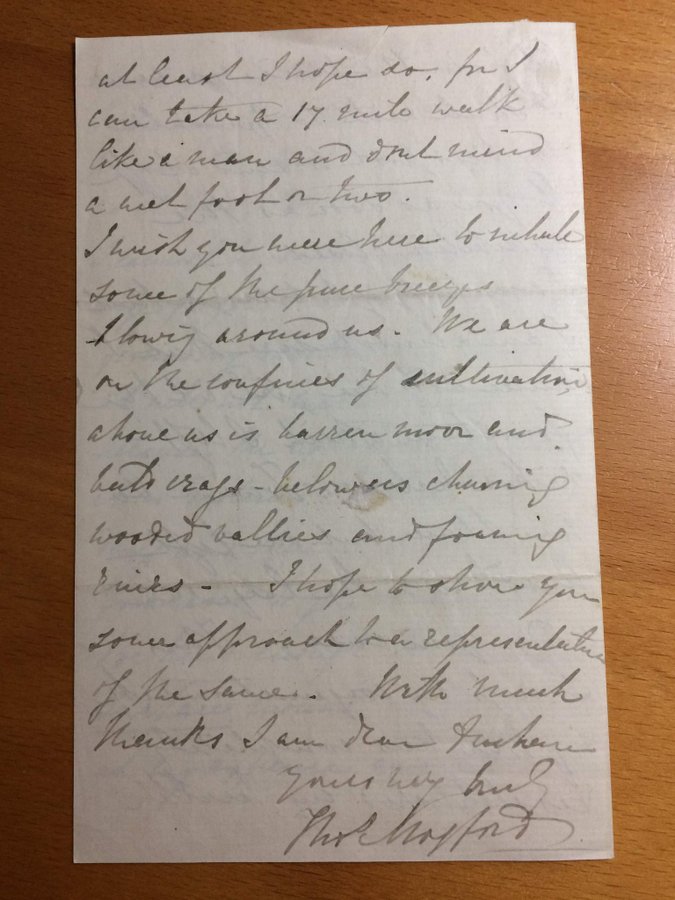 at least I hope so, for I
can take a 17 mile walk
like a man and dont mind
a wet foot or two.
I wish you were here to inhale
some of the pure breezes
blowing around us. We are
on the confines of cultivation,
above us is barren moor and
crags - below us charming
wooded vallies and foaming
rivers - I hope to show you
some approach to a representation
of the same. With much
thanks I am dear
yours very truly
Thos